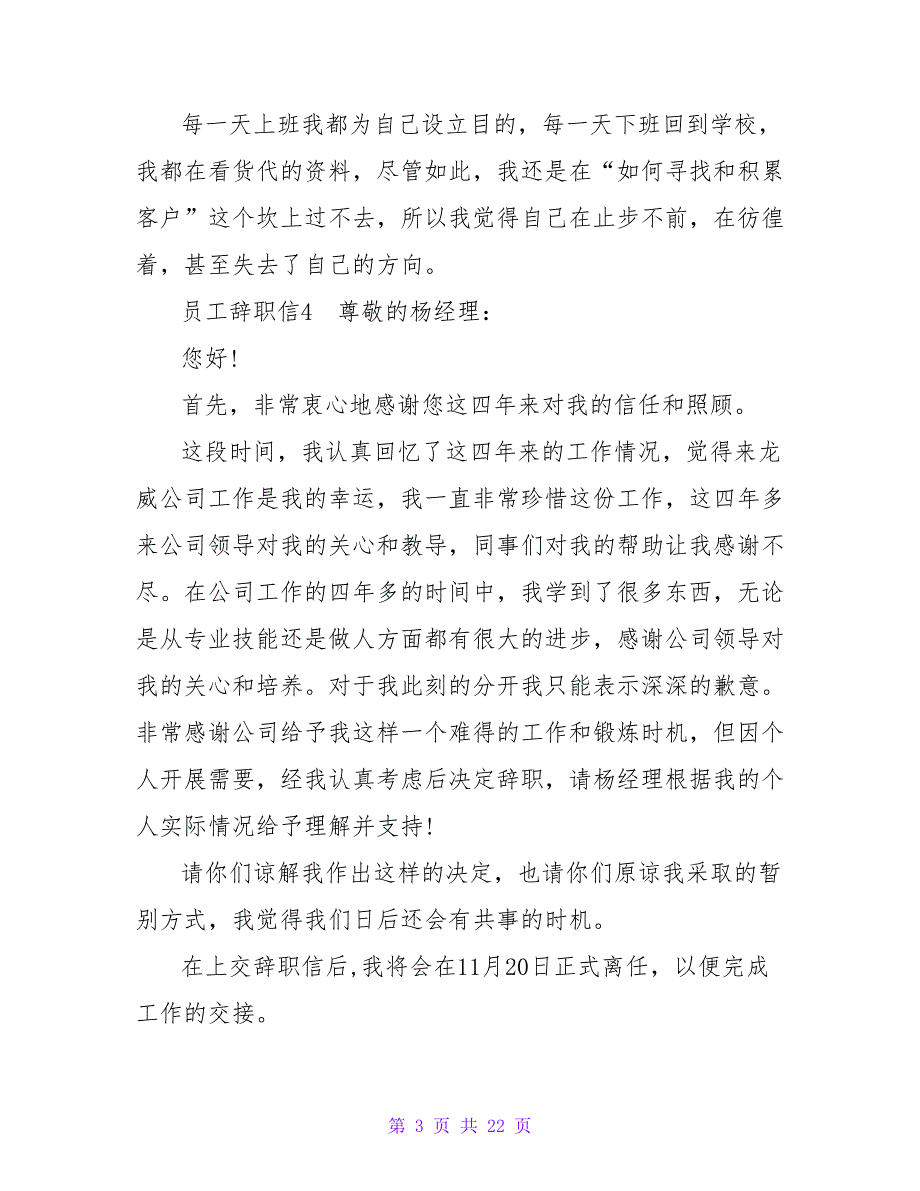 每一天上班我都为自己设立目的，每一天下班回到学校，
我都在看货代的资料，尽管如此，我还是在“如何寻找和积累
客户”这个坎上过不去，所以我觉得自己在止步不前，在彷徨
着，甚至失去了自己的方向。
员工辞职信4　尊敬的杨经理：
您好!
首先，非常衷心地感谢您这四年来对我的信任和照顾。
这段时间，我认真回忆了这四年来的工作情况，觉得来龙
威公司工作是我的幸运，我一直非常珍惜这份工作，这四年多
来公司领导对我的关心和教导，同事们对我的帮助让我感谢不
尽。在公司工作的四年多的时间中，我学到了很多东西，无论
是从专业技能还是做人方面都有很大的进步，感谢公司领导对
我的关心和培养。对于我此刻的分开我只能表示深深的歉意。
非常感谢公司给予我这样一个难得的工作和锻炼时机，但因个
人开展需要，经我认真考虑后决定辞职，请杨经理根据我的个
人实际情况给予理解并支持!
请你们谅解我作出这样的决定，也请你们原谅我采取的暂
别方式，我觉得我们日后还会有共事的时机。
在上交辞职信后,我将会在11月20日正式离任，以便完成
工作的交接。
第 3 页 共 22 页